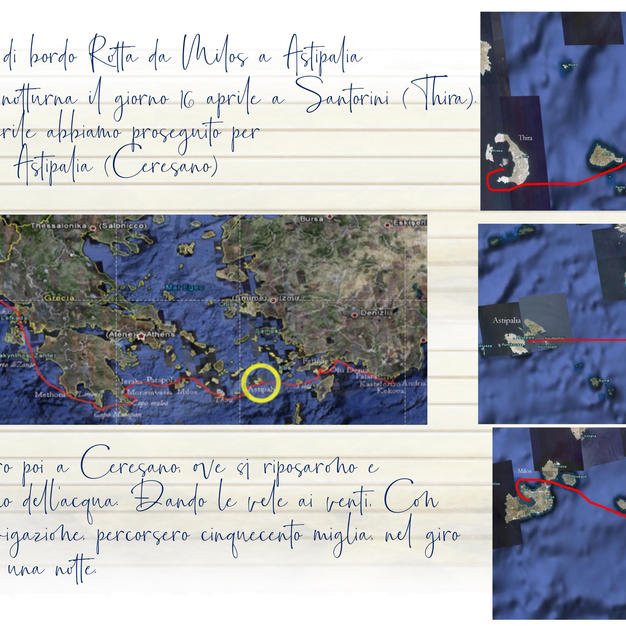 di bordo Rotta da Milos a Astipalia
notturna il giorno 16 aprile a Santorini (Thira).
rile abbiamo proseguito per
Astipalia (Ceresano)
Thira
Thessalonika (Salonicco)
Bursa
Eskişehir
Mar Egeo
Grecia
(Smirne) Izmir
Denizli
(Atene) Athens
Zakynthos
Methoni
Monemvasia
Capo Matapan
Milos
Astipalia
Kastelorizo
Kekova
Astipalia
ro poi a Ceresano, ove si riposarono e
no dell'acqua. Dando le vele ai venti, Con
igazione, percorsero cinquecento miglia, nel giro
una notte.
Milos